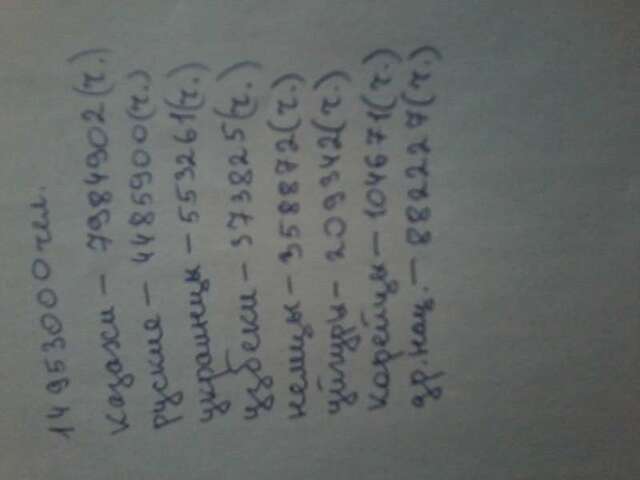 14953000 чел.
казахи – 7984902 (ч.)
руские – 4485900 (ч.)
украинцы – 553261 (ч.)
узбеки – 373825 (ч.)
немцы – 358872 (ч.)
уйгуры – 209342 (ч.)
корейцы – 104671 (ч.)
др.нац. – 882227 (ч.)